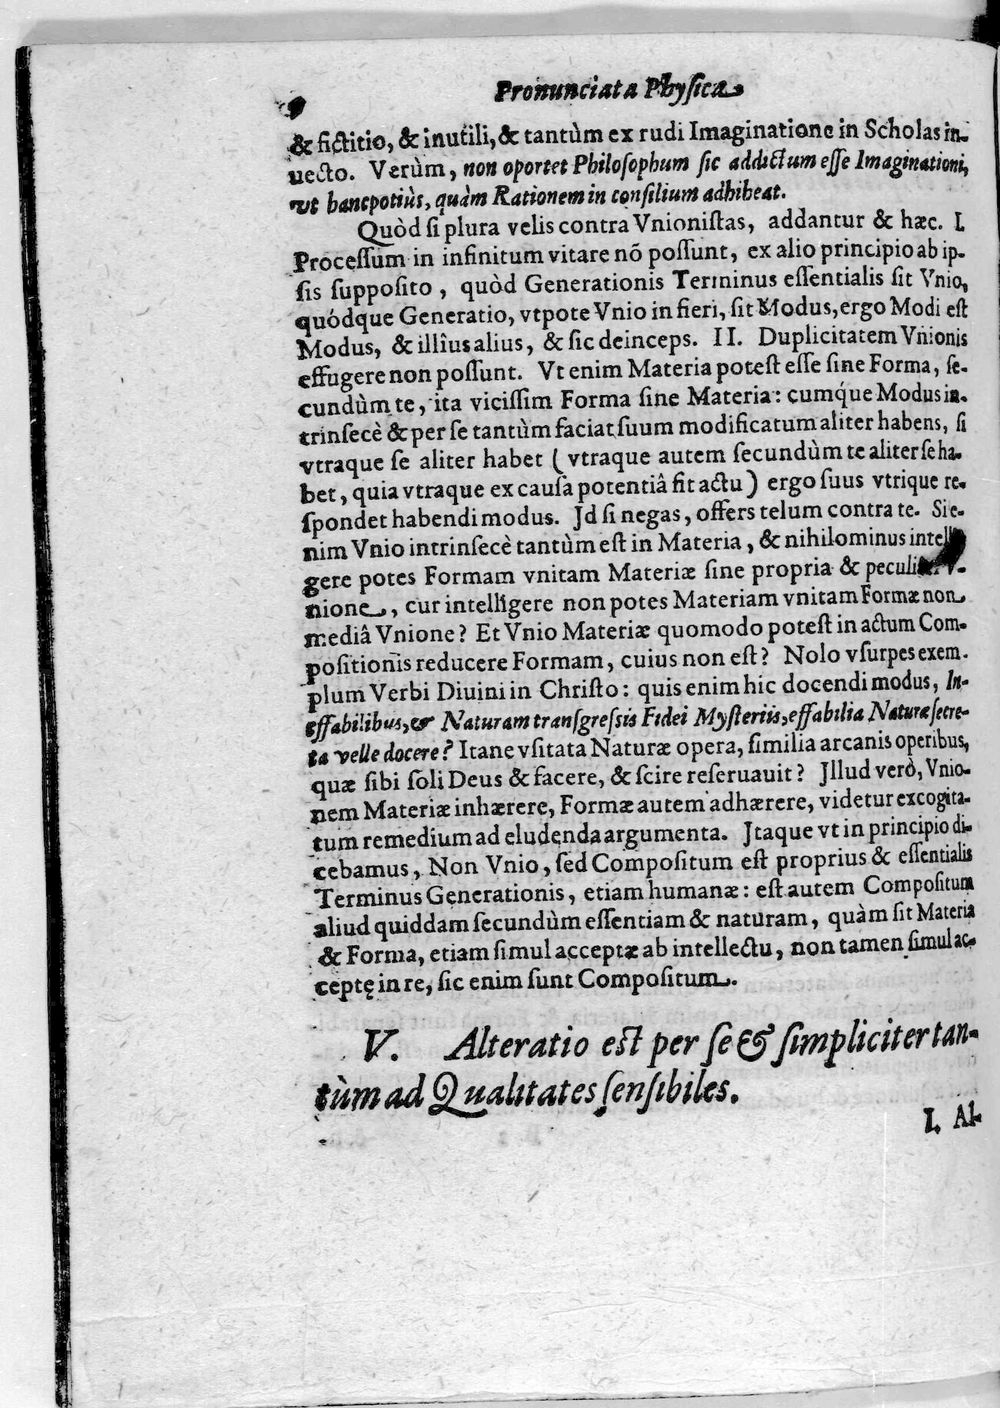 Pronunciata Physicæ
& fictitio, & inutili, & tantùm ex rudi Imaginatione in Scholas in-
uecto. Verùm, non oportet Philosophum sic addictum esse Imaginationi,
vt hanc potiùs, quàm Rationem in consilium adhibeat.
Quòd si plura velis contra Vnionistas, addantur & hæc. I.
Processum in infinitum vitare nõ possunt, ex alio principio ab ip-
sis supposito, quòd Generationis Terminus essentialis sit Vnio,
quódque Generatio, vtpote Vnio in fieri, sit Modus, ergo Modi est
Modus, & illîus alius, & sic deinceps. II. Duplicitatem Vnionis
effugere non possunt. Vt enim Materia potest esse sine Forma, se-
cundùm te, ita vicissim Forma sine Materia: cumq́ue Modus in-
trinsecè & per se tantùm faciat suum modificatum aliter habens, si
vtraque se aliter habet (vtraque autem secundùm te aliter se ha-
bet, quia vtraque ex causa potentiâ fit actu) ergo suus vtrique re-
spondet habendi modus. Id si negas, offers telum contra te. Si e-
nim Vnio intrinsecè tantùm est in Materia, & nihilominus intelli-
gere potes Formam vnitam Materiæ sine propria & peculiari V-
nione, cur intelligere non potes Materiam vnitam Formæ non
mediâ Vnione? Et Vnio Materiæ quomodo potest in actum Com-
positionis reducere Formam, cuius non est? Nolo vsurpes exem-
plum Verbi Diuini in Christo: quis enim hic docendi modus, In-
effabilibus, & Naturam transgressis Fidei Mysteriis, effabilia Naturæ secre-
ta velle docere? Itane vsitata Naturæ opera, similia arcanis operibus,
quæ sibi soli Deus & facere, & scire reseruauit? Illud verò, Vnio-
nem Materiæ inhærere, Formæ autem adhærere, videtur excogita-
tum remedium ad eludenda argumenta. Itaque vt in principio di-
cebamus, Non Vnio, sed Compositum est proprius & essentialis
Terminus Generationis, etiam humanæ: est autem Compositum
aliud quiddam secundùm essentiam & naturam, quàm sit Materia
& Forma, etiam simul acceptæ ab intellectu, non tamen simul ac-
ceptę in re, sic enim sunt Compositum.
V. Alteratio est per se & simpliciter tan-
tùm ad Qualitates sensibiles.
I. Al-